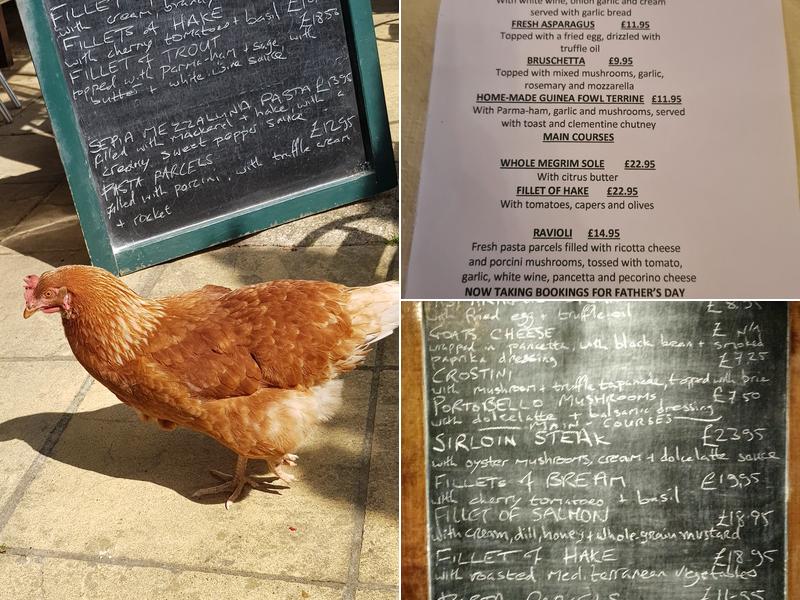 FILLET
with cream brandy
FILLETS of HAKE £18.50
with cherry tomatoes + basil
FILLET of TROUT
topped with Parma-ham + sage with
butter + white wine sauce
SEPIA MEZZALUNA PASTA £13.95
filled with mackerel + hake, with a
creamy sweet pepper sauce
PASTA PARCELS £12.95
filled with porcini, with truffle cream
+ rocket
With white wine, onion garlic and cream
served with garlic bread
FRESH ASPARAGUS £11.95
Topped with a fried egg, drizzled with
truffle oil
BRUSCHETTA £9.95
Topped with mixed mushrooms, garlic,
rosemary and mozzarella
HOME-MADE GUINEA FOWL TERRINE £11.95
With Parma-ham, garlic and mushrooms, served
with toast and clementine chutney
MAIN COURSES
WHOLE MEGRIM SOLE £22.95
With citrus butter
FILLET OF HAKE £22.95
With tomatoes, capers and olives
RAVIOLI £14.95
Fresh pasta parcels filled with ricotta cheese
and porcini mushrooms, tossed with tomato,
garlic, white wine, pancetta and pecorino cheese
NOW TAKING BOOKINGS FOR FATHER'S DAY
with fried egg + truffle oil £8.95
GOATS CHEESE £ N/A
wrapped in pancetta, with black bean + smoked
paprika dressing £7.25
CROSTINI
with mushroom + truffle tapenade, topped with brie
PORTOBELLO MUSHROOMS £7.50
with dolcelatte + balsamic dressing
MAIN - COURSES
SIRLOIN STEAK £23.95
with oyster mushrooms, cream + dolcelatte sauce
FILLETS of BREAM £19.95
with cherry tomatoes + basil
FILLET OF SALMON £18.95
with cream, dill, honey + whole grain mustard
FILLET of HAKE £18.95
with roasted mediterranean vegetables
PASTA PARCELS £11.95